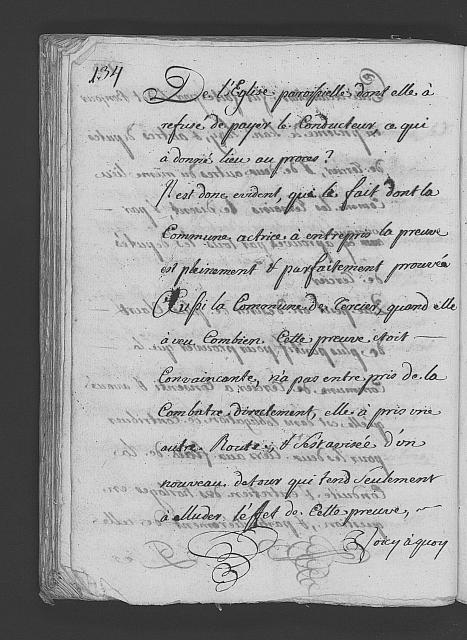 134
De l'Eglise paroissielle dont elle à
refusé de payer le Conducteur ce qui
à donné lieu au proces?
Il est donc evident, que le fait dont la
Commune actrice à entrepris la preuve
est pleinement & parfaitement prouvée
Aussi la Commune de Cercier, quand elle
à veu Combien Cette preuve etoit
Convaincante, n'a pas entre pris de la
Combatre directement, elle à pris vne
autre Route, & s'est avisée d'un
nouveau detour qui tend seulement
à elluder l'effet de Cette preuve,
Voicy à quoy